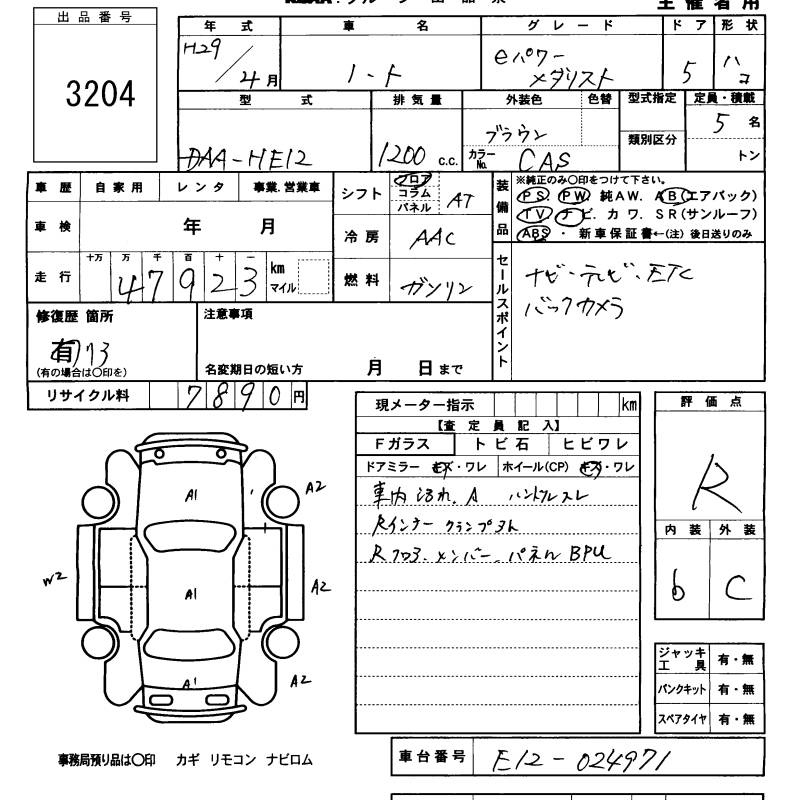 出品番号
3204
年式 車名 グレード ドア 形状
H29/4月 ノート eパワー メダリスト 5 ハコ
型式 排気量 外装色 色替 型式指定 定員・積載
DAA-HE12 1200 c.c. ブラウン カラーNo. CAS 類別区分 5名 トン
車歴 自家用 レンタ 事業.営業車
車検 年 月
走行 十万 万 千 百 十 一
47923 km マイル
シフト フロア コラム パネル AT
冷房 AAC
燃料 ガソリン
装備品
※純正のみ〇印をつけて下さい。
PS. PW. 純AW. AB(エアバック)
TV. ナビ. カワ. SR(サンルーフ)
ABS ・ 新車保証書←(注) 後日送りのみ
セールスポイント
ナビ・テレビ、ETC
バックカメラ
修復歴 箇所
有
(有の場合は〇印を)
注意事項
名変期日の短い方 月 日まで
リサイクル料 7890円
現メーター指示 km
【査定員記入】
Fガラス トビ石 ヒビワレ
ドアミラー キズ・ワレ ホイール(CP) キズ・ワレ
車内 汚れ、A ハンドルスレ
Rインナー クランプ
Rフロア、メンバー、パネル BPU
評価点
R
内装 外装
b C
A1
A2
W2
A1
A2
A1
A2
ジャッキ 工具 有・無
パンクキット 有・無
スペアタイヤ 有・無
事務局預り品は〇印 カギ リモコン ナビロム
車台番号 E12-024971